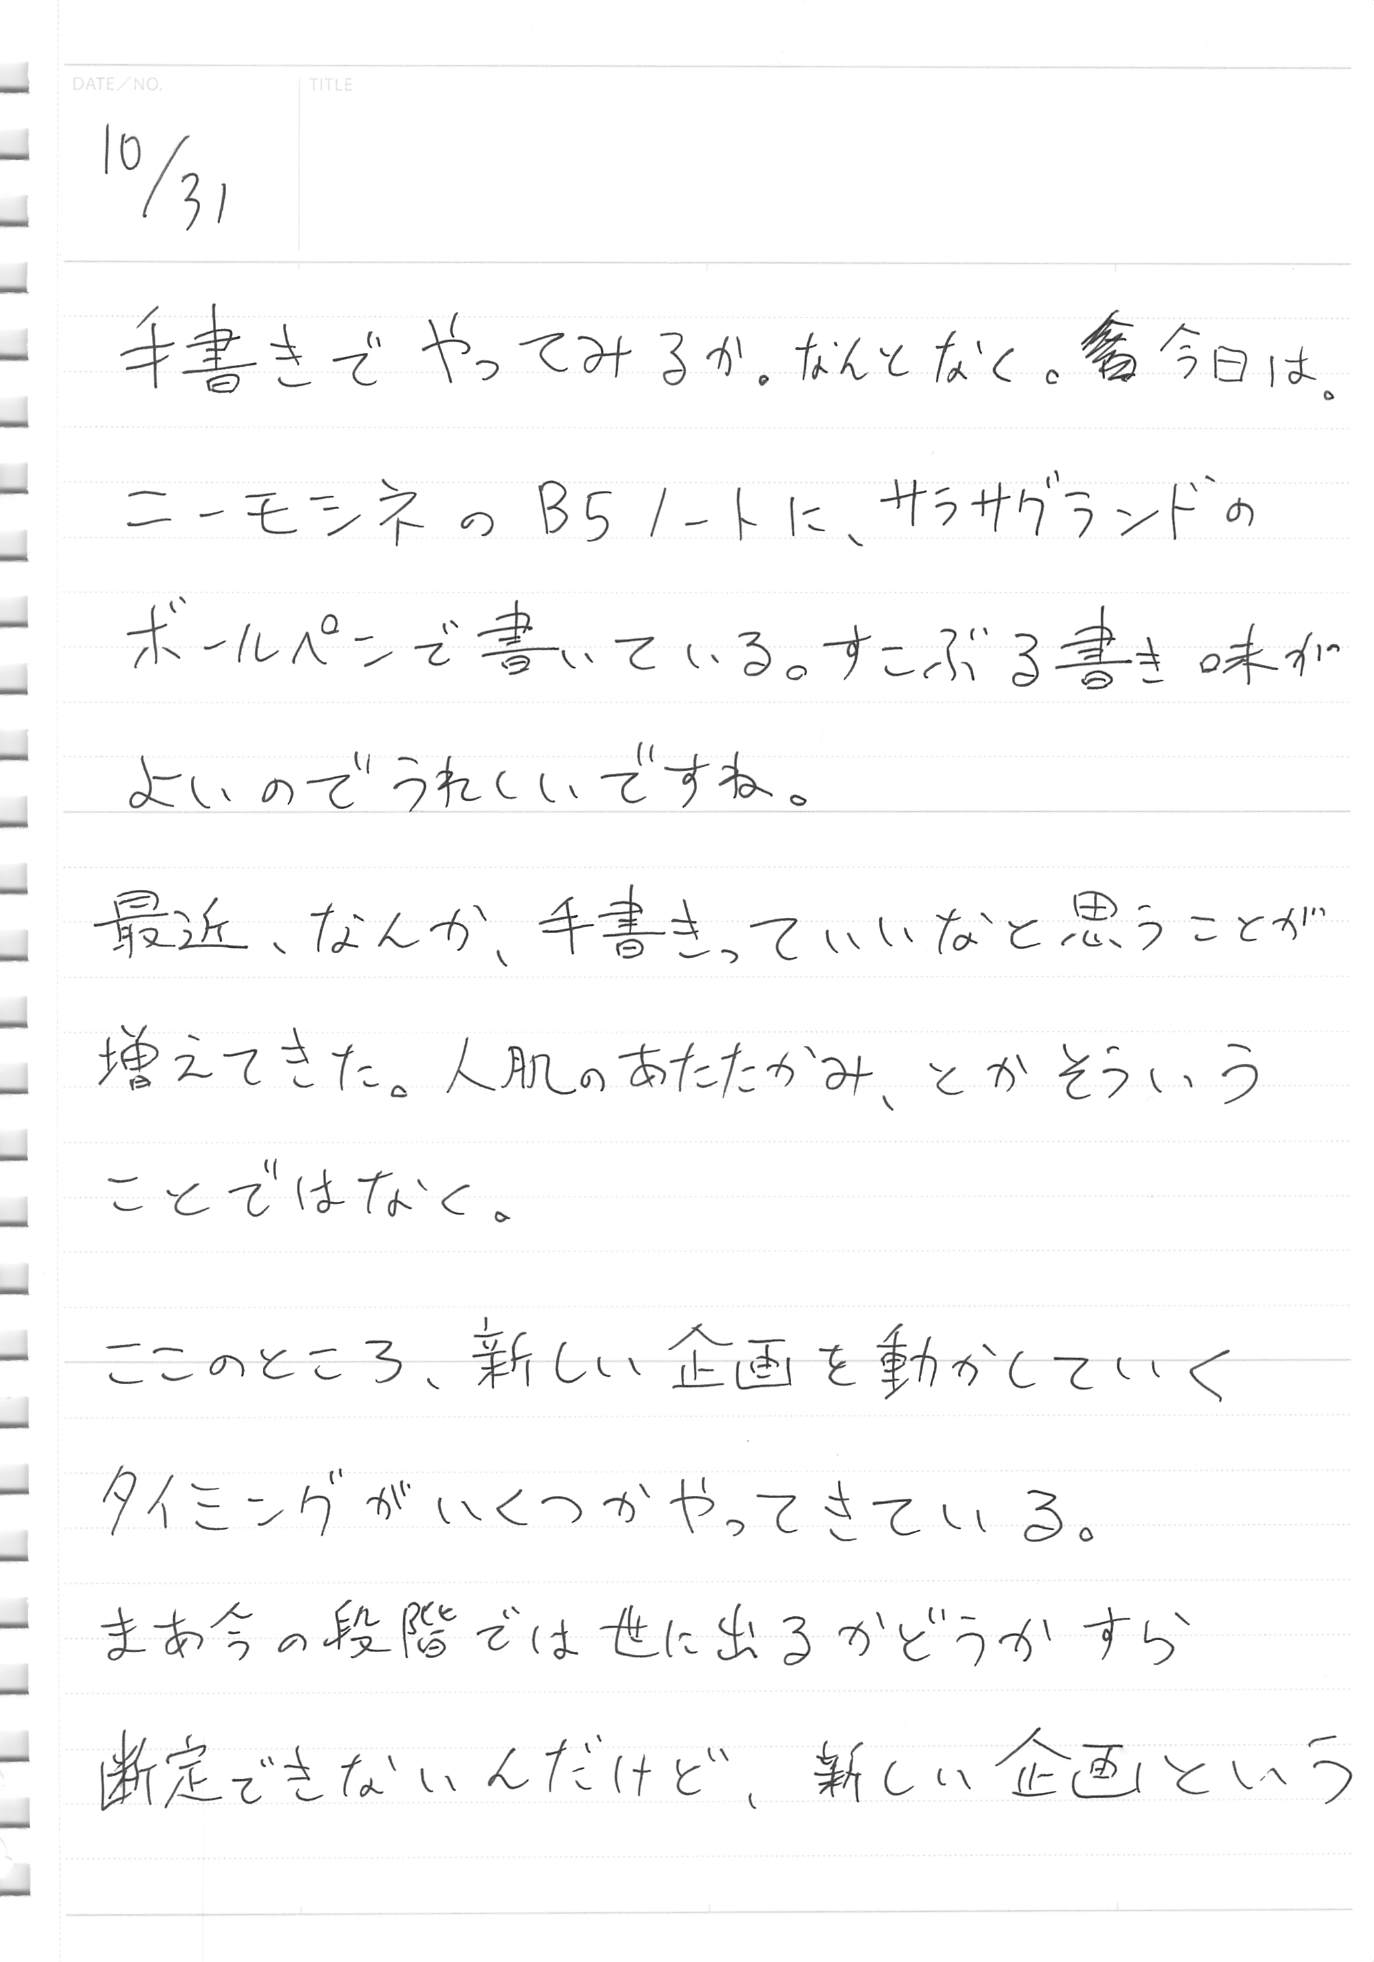 DATE/NO.
TITLE
10/31
手書きでやってみるか。なんとなく。今日は。
ニーモシネのB5ノートに、サラサグランドの
ボールペンで書いている。すこぶる書き味が
よいのでうれしいですね。
最近、なんか、手書きっていいなと思うことが
増えてきた。人肌のあたたかみ、とかそういう
ことではなく。
ここのところ、新しい企画を動かしていく
タイミングがいくつかやってきている。
まあ今の段階では世に出るかどうかすら
断定できないんだけど、新しい企画という